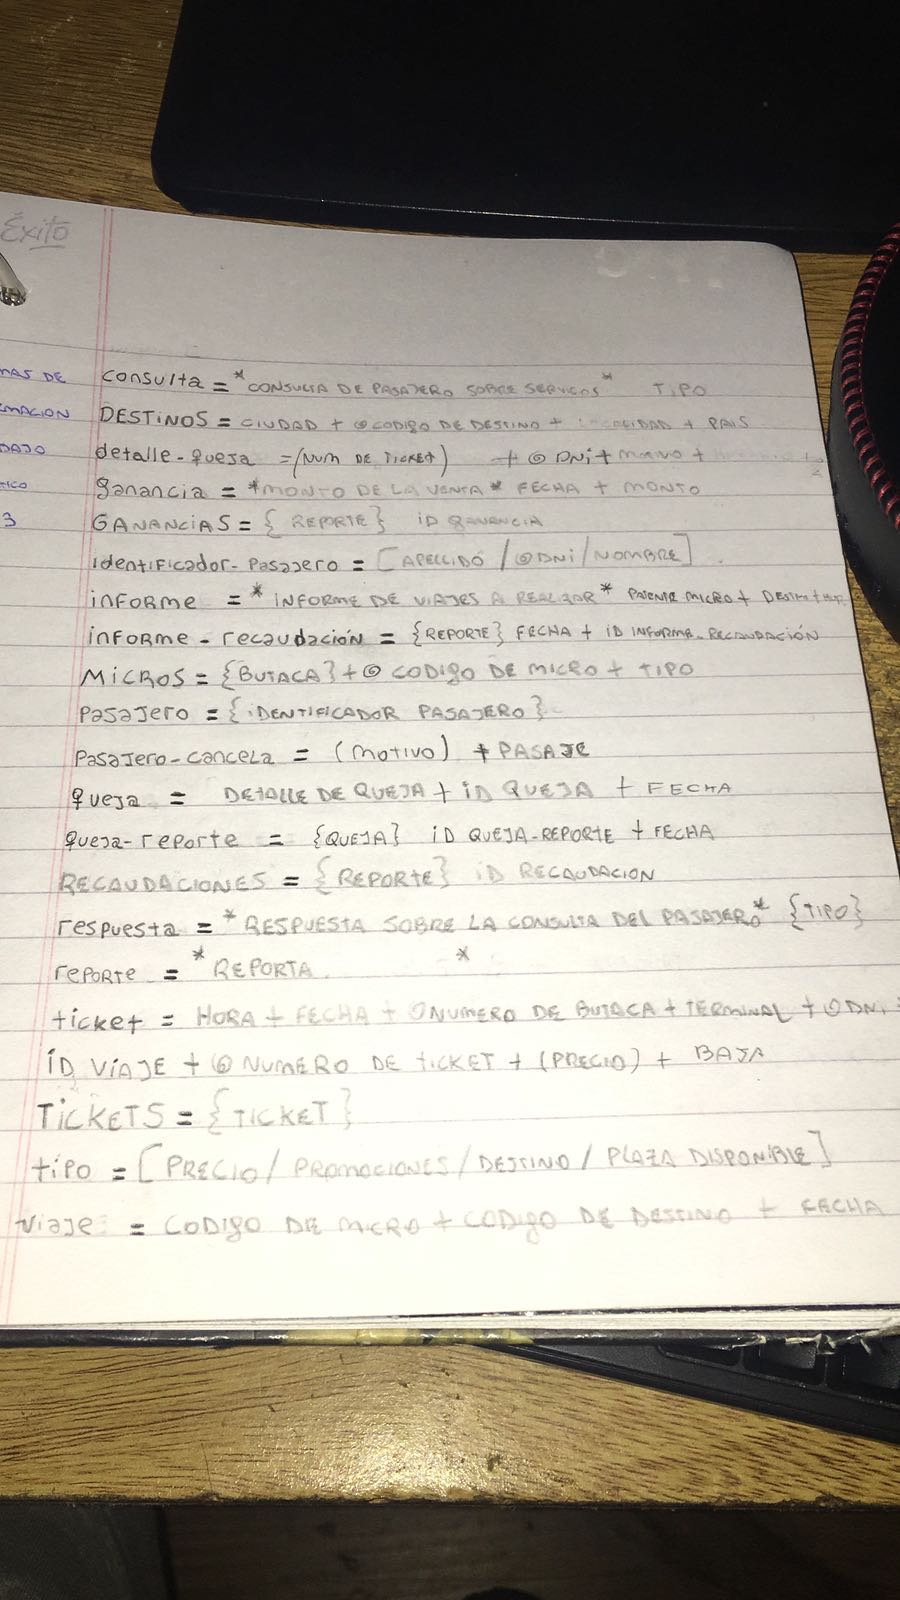 Éxito
MAS DE
consulta = *CONSULTA DE PASAJERO SOBRE SERVICIOS* TIPO
MACION
DESTINOS = CIUDAD + @CODIGO DE DESTINO + LOCALIDAD + PAIS
BAJO
detalle-queja = (NUM DE TICKET) + @ DNI +
TICO
ganancia = *MONTO DE LA VENTA* FECHA + MONTO
3
GANANCIAS = { REPORTE} ID GANANCIA
identificador-Pasajero = [APELLIDO / @DNI / NOMBRE]
informe = * INFORME DE VIAJES A REALIZAR* PATENTE MICRO +
informe-recaudación = {REPORTE} FECHA + ID INFORME-RECAUDACIÓN
MICROS = {BUTACA} + @ CODIGO DE MICRO + TIPO
Pasajero = {IDENTIFICADOR PASAJERO}
Pasajero-cancela = (MOTIVO) + PASAJE
queja = DETALLE DE QUEJA + ID QUEJA + FECHA
queja-reporte = {QUEJA} ID QUEJA-REPORTE + FECHA
RECAUDACIONES = {REPORTE} ID RECAUDACION
respuesta = * RESPUESTA SOBRE LA CONSULTA DEL PASAJERO* {TIPO}
reporte = * REPORTA *
ticket = HORA + FECHA + @NUMERO DE BUTACA + TERMINAL + @DNI +
ID VIAJE + @ NUMERO DE TICKET + (PRECIO) + BAJA
TICKETS = {TICKET}
tipo = [PRECIO / PROMOCIONES / DESTINO / PLAZA DISPONIBLE]
Viaje = CODIGO DE MICRO + CODIGO DE DESTINO + FECHA